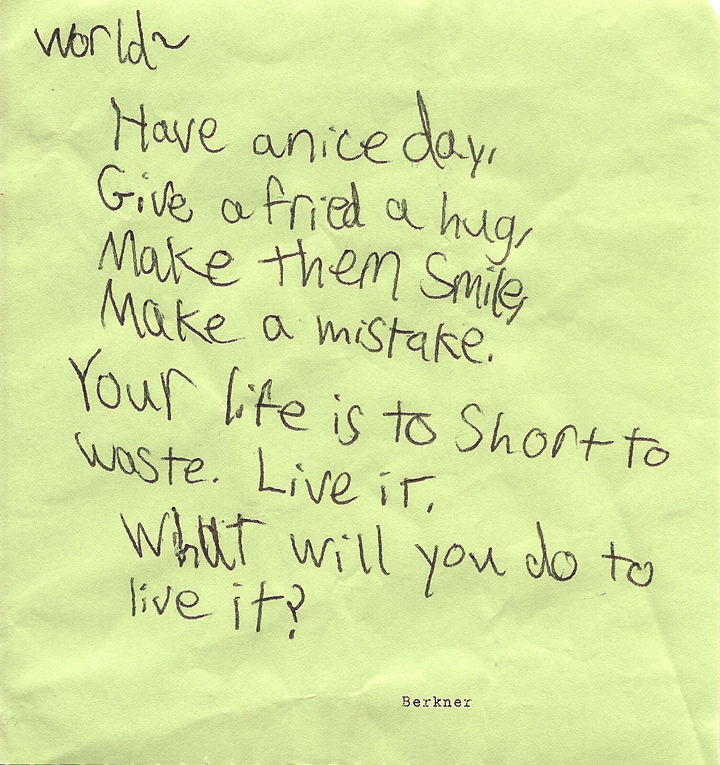 world~
Have a nice day,
Give a fried a hug,
Make them smile,
Make a mistake.
Your life is to short to
waste. Live it.
What will you do to
live it?
Berkner